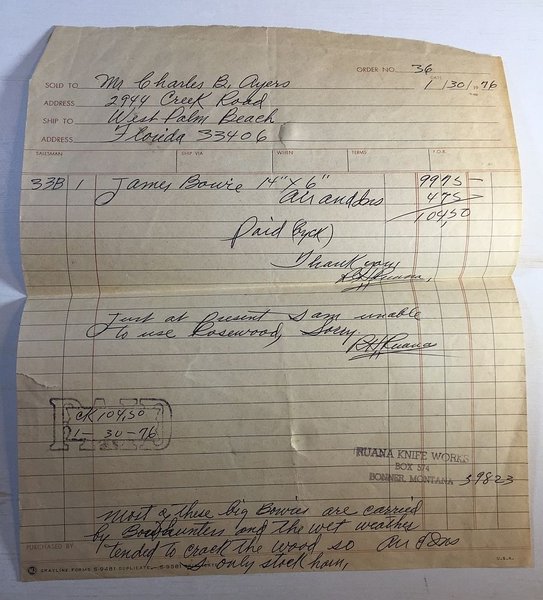 ORDER NO. 36
DATE 1/30/1976
SOLD TO Mr Charles B. Ayers
ADDRESS 2944 Creek Road
SHIP TO West Palm Beach
ADDRESS Florida 33406
SALESMAN SHIP VIA WHEN TERMS F.O.B.
33B 1 James Bowie 14" X 6" 9975
Air and Ins 475
104,50
Paid (by ck)
Thank you,
R H Ruana,
Just at Present I am unable
to use Rosewood, Sorry.
R H Ruana
PAID
CK 104,50
1-30-76
RUANA KNIFE WORKS
BOX 574
BONNER, MONTANA 59823
most of these big Bowies are carried
by Bowhunters and the wet weather
PURCHASED BY tended to crack the wood so Air & Ins
U.S.A.
GRAYLINE FORMS S-9481 DUPLICATE, S-9381
I only stock horn,